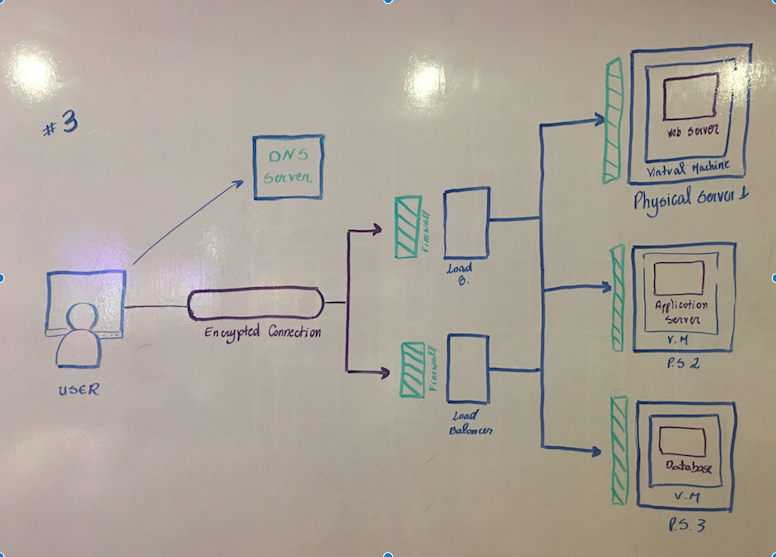 #3
DNS
Server
USER
Encrypted Connection
Firewall
Load
B.
Firewall
Load
Balancer
Web Server
Virtual Machine
Physical Server 1
Application
Server
V.M
P.S 2
Database
V.M
P.S.3